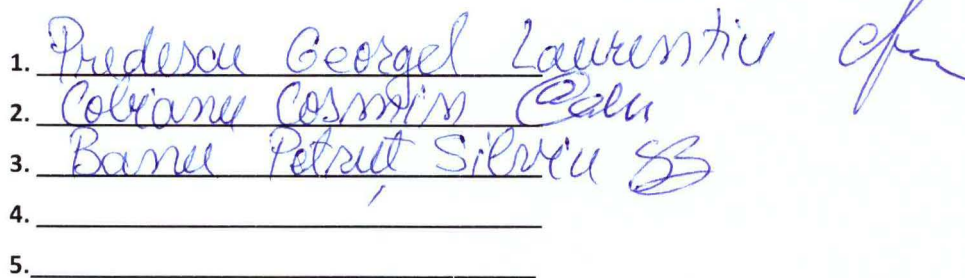 1. Predescu Georgel Laurentiu
2. Cobianu Cosmin
3. Banu Petruț Silviu
4.
5.